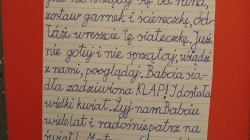 zostaw garnek i ściereczkę, od-
łóż wreszcie tę siateczkę. Już
nie gotuj i nie sprzątaj, usiądź
z nami, pooglądaj. Babcia sia-
dła zadziwiona KLAP! I dostała
wielki kwiat. Żyj nam Babciu
wiele lat i radośnie patrz na